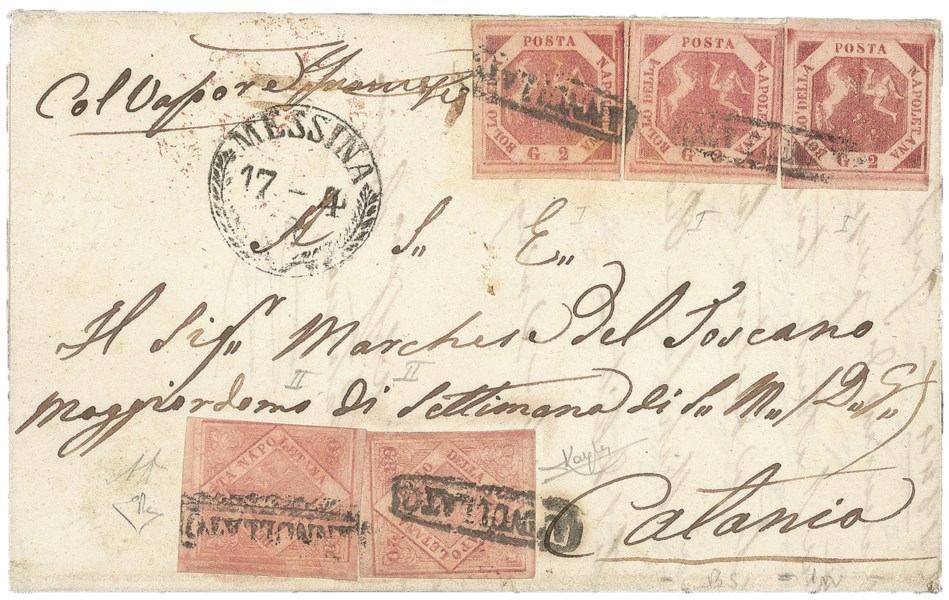 Col Vapore Francese
POSTA POSTA POSTA
NAPOLETANA NAPOLETANA NAPOLETANA
BOLLO DELLA BOLLO DELLA BOLLO DELLA
G. 2 G. 2 G. 2
ANNULLATO
MESSINA
17 - 4
A S„ E„
I I I
Il Sig„ Marchese del Toscano
II II
Maggiordomo di Settimana di S„ M„ (D„ G„)
POSTA NAPOLETANA
BOLLO DELLA
POSTA NAPOLETANA
ANNULLATO ANNULLATO
Catania